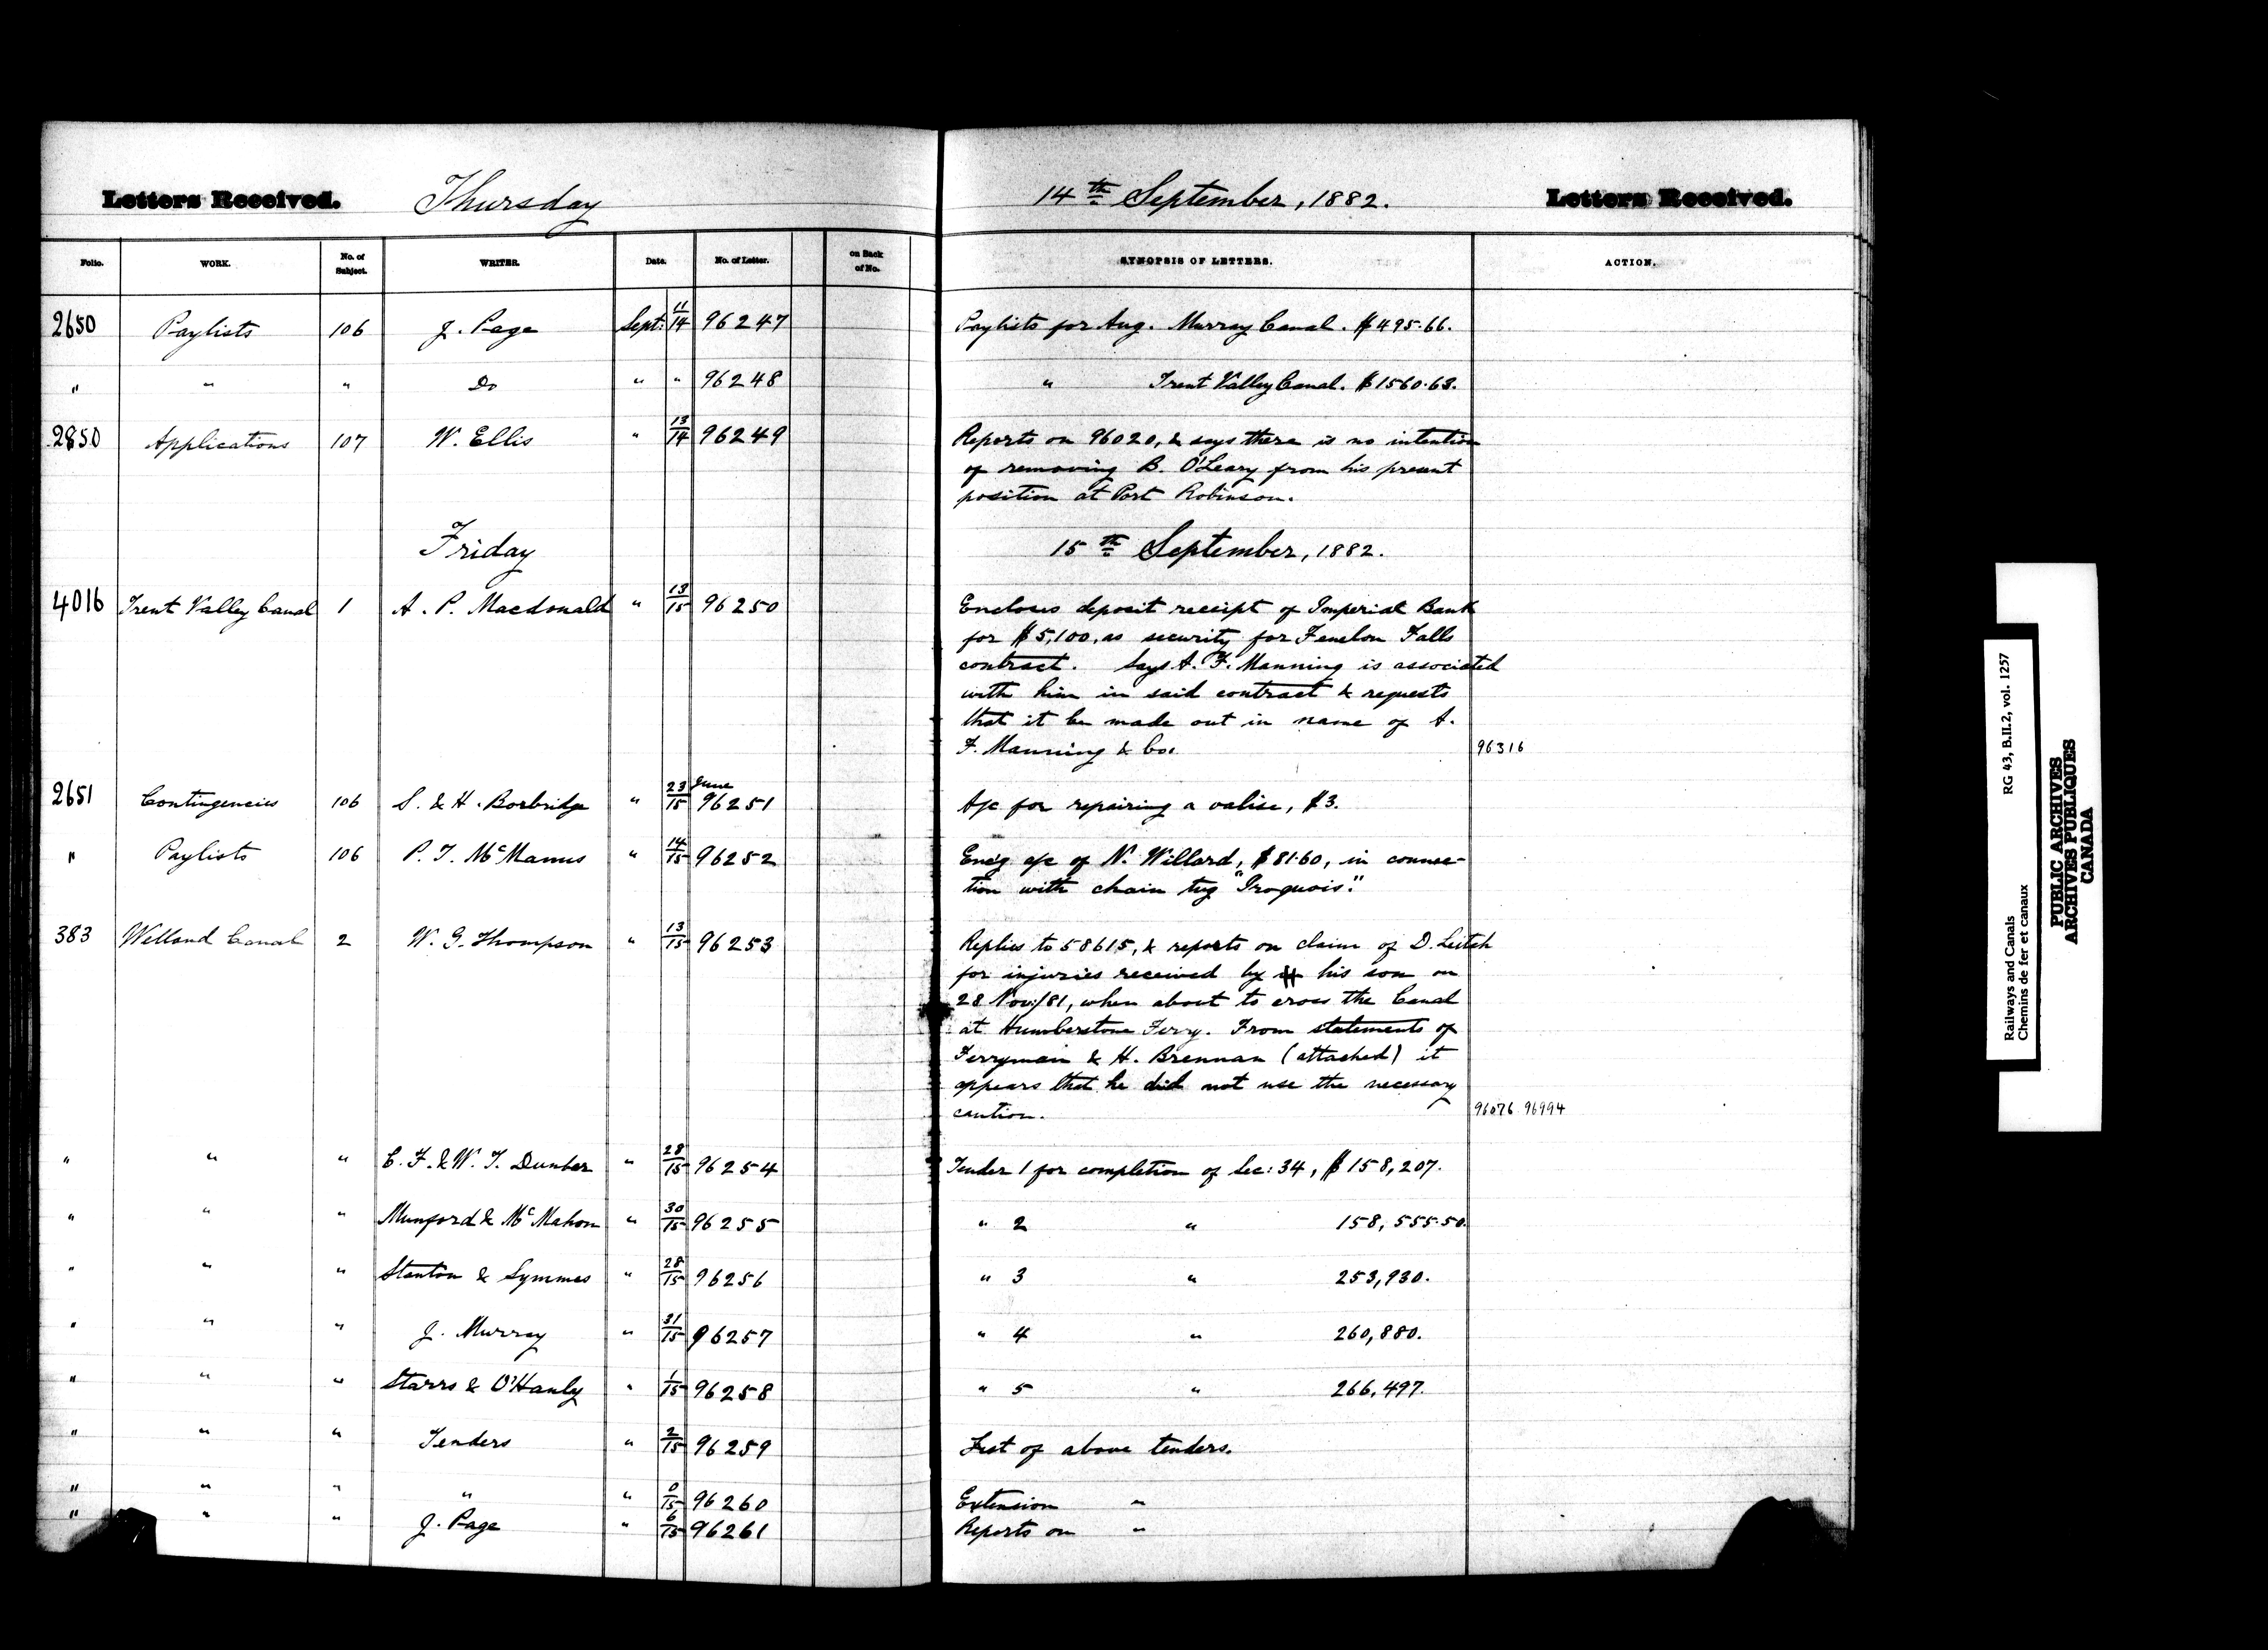 Letters Received. Thursday 14th September, 1882. Letters Received.
Folio. WORK. No. of Subject. WRITER. Date. No. of Letter. on Back of No. SYNOPSIS OF LETTERS. ACTION.
2650 Paylists 106 J. Page Sept: 11/14 96247 Paylists for Aug. Murray Canal. $495.66.
" " " Do " " 96248 " Trent Valley Canal. $1560.63.
2850 Applications 107 W. Ellis " 13/14 96249 Reports on 96020, & says there is no intention
of removing B. O'Leary from his present
position at Port Robinson.
Friday 15th September, 1882.
4016 Trent Valley Canal 1 A. P. Macdonald " 13/15 96250 Encloses deposit receipt of Imperial Bank
for $5,100, as security for Fenelon Falls
contract. Says A. F. Manning is associated
with him in said contract & requests
that it be made out in name of A.
F. Manning & Co. 96316
2651 Contingencies 106 S. & H. Borbridge " 23/15 June 96251 A/c for repairing a valise, $3.
" Paylists 106 P. T. McManus " 14/15 96252 Enc'g a/c of N. Willard, $81.60, in connec-
tion with chain tug "Iroquois."
383 Welland Canal 2 W. G. Thompson " 13/15 96253 Replies to 58615, & reports on claim of D. Leitch
for injuries received by his son on
28 Nov:/81, when about to cross the Canal
at Humberstone Ferry. From statements of
Ferryman & H. Brennan (attached) it
appears that he did not use the necessary
caution. 96076 96994
" " " C. F. & W. T. Dunbar " 28/15 96254 Tender 1 for completion of Sec: 34, $158,207.
" " " Munford & McMahon " 30/15 96255 " 2 " 158,555.50.
" " " Stanton & Symmes " 28/15 96256 " 3 " 253,930.
" " " J. Murray " 31/15 96257 " 4 " 260,880.
" " " Starrs & O'Hanly " 1/15 96258 " 5 " 266,497.
" " " Tenders " 2/15 96259 List of above tenders.
" " " " " 0/15 96260 Extension "
" " " J. Page " 6/15 96261 Reports on "
Railways and Canals RG 43, B.II.2, vol. 1257
Chemins de fer et canaux
PUBLIC ARCHIVES
ARCHIVES PUBLIQUES
CANADA